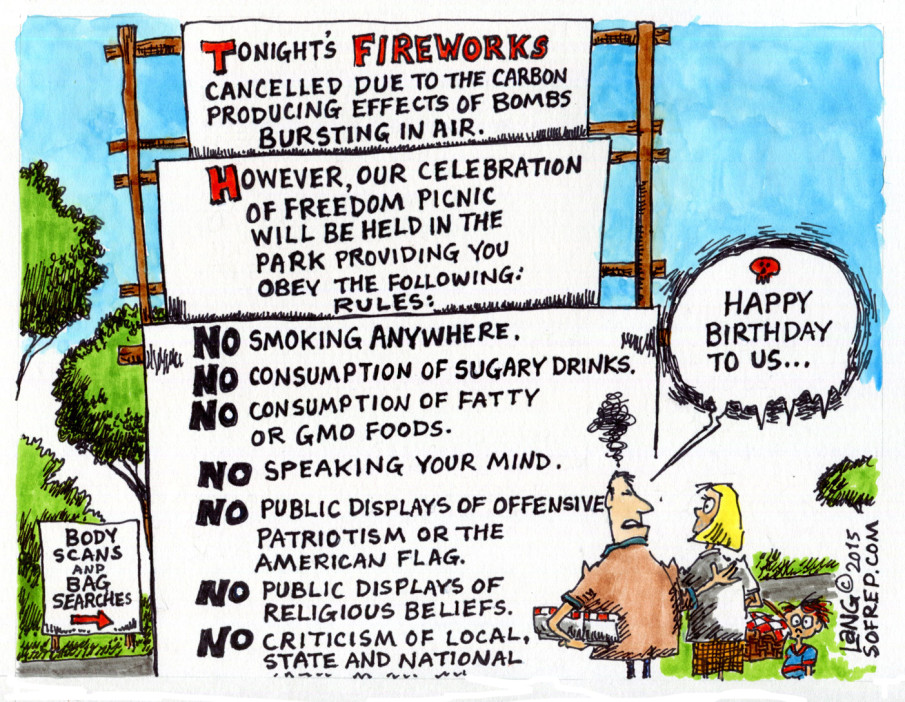 TONIGHT'S FIREWORKS
CANCELLED DUE TO THE CARBON
PRODUCING EFFECTS OF BOMBS
BURSTING IN AIR.
HOWEVER, OUR CELEBRATION
OF FREEDOM PICNIC
WILL BE HELD IN THE
PARK PROVIDING YOU
OBEY THE FOLLOWING:
RULES:
NO SMOKING ANYWHERE.
NO CONSUMPTION OF SUGARY DRINKS.
NO CONSUMPTION OF FATTY
OR GMO FOODS.
NO SPEAKING YOUR MIND.
NO PUBLIC DISPLAYS OF OFFENSIVE
PATRIOTISM OR THE
AMERICAN FLAG.
NO PUBLIC DISPLAYS OF
RELIGIOUS BELIEFS.
NO CRITICISM OF LOCAL,
STATE AND NATIONAL
HAPPY
BIRTHDAY
TO US...
BODY
SCANS
AND
BAG
SEARCHES
LANG © 2015
SOFREP.COM